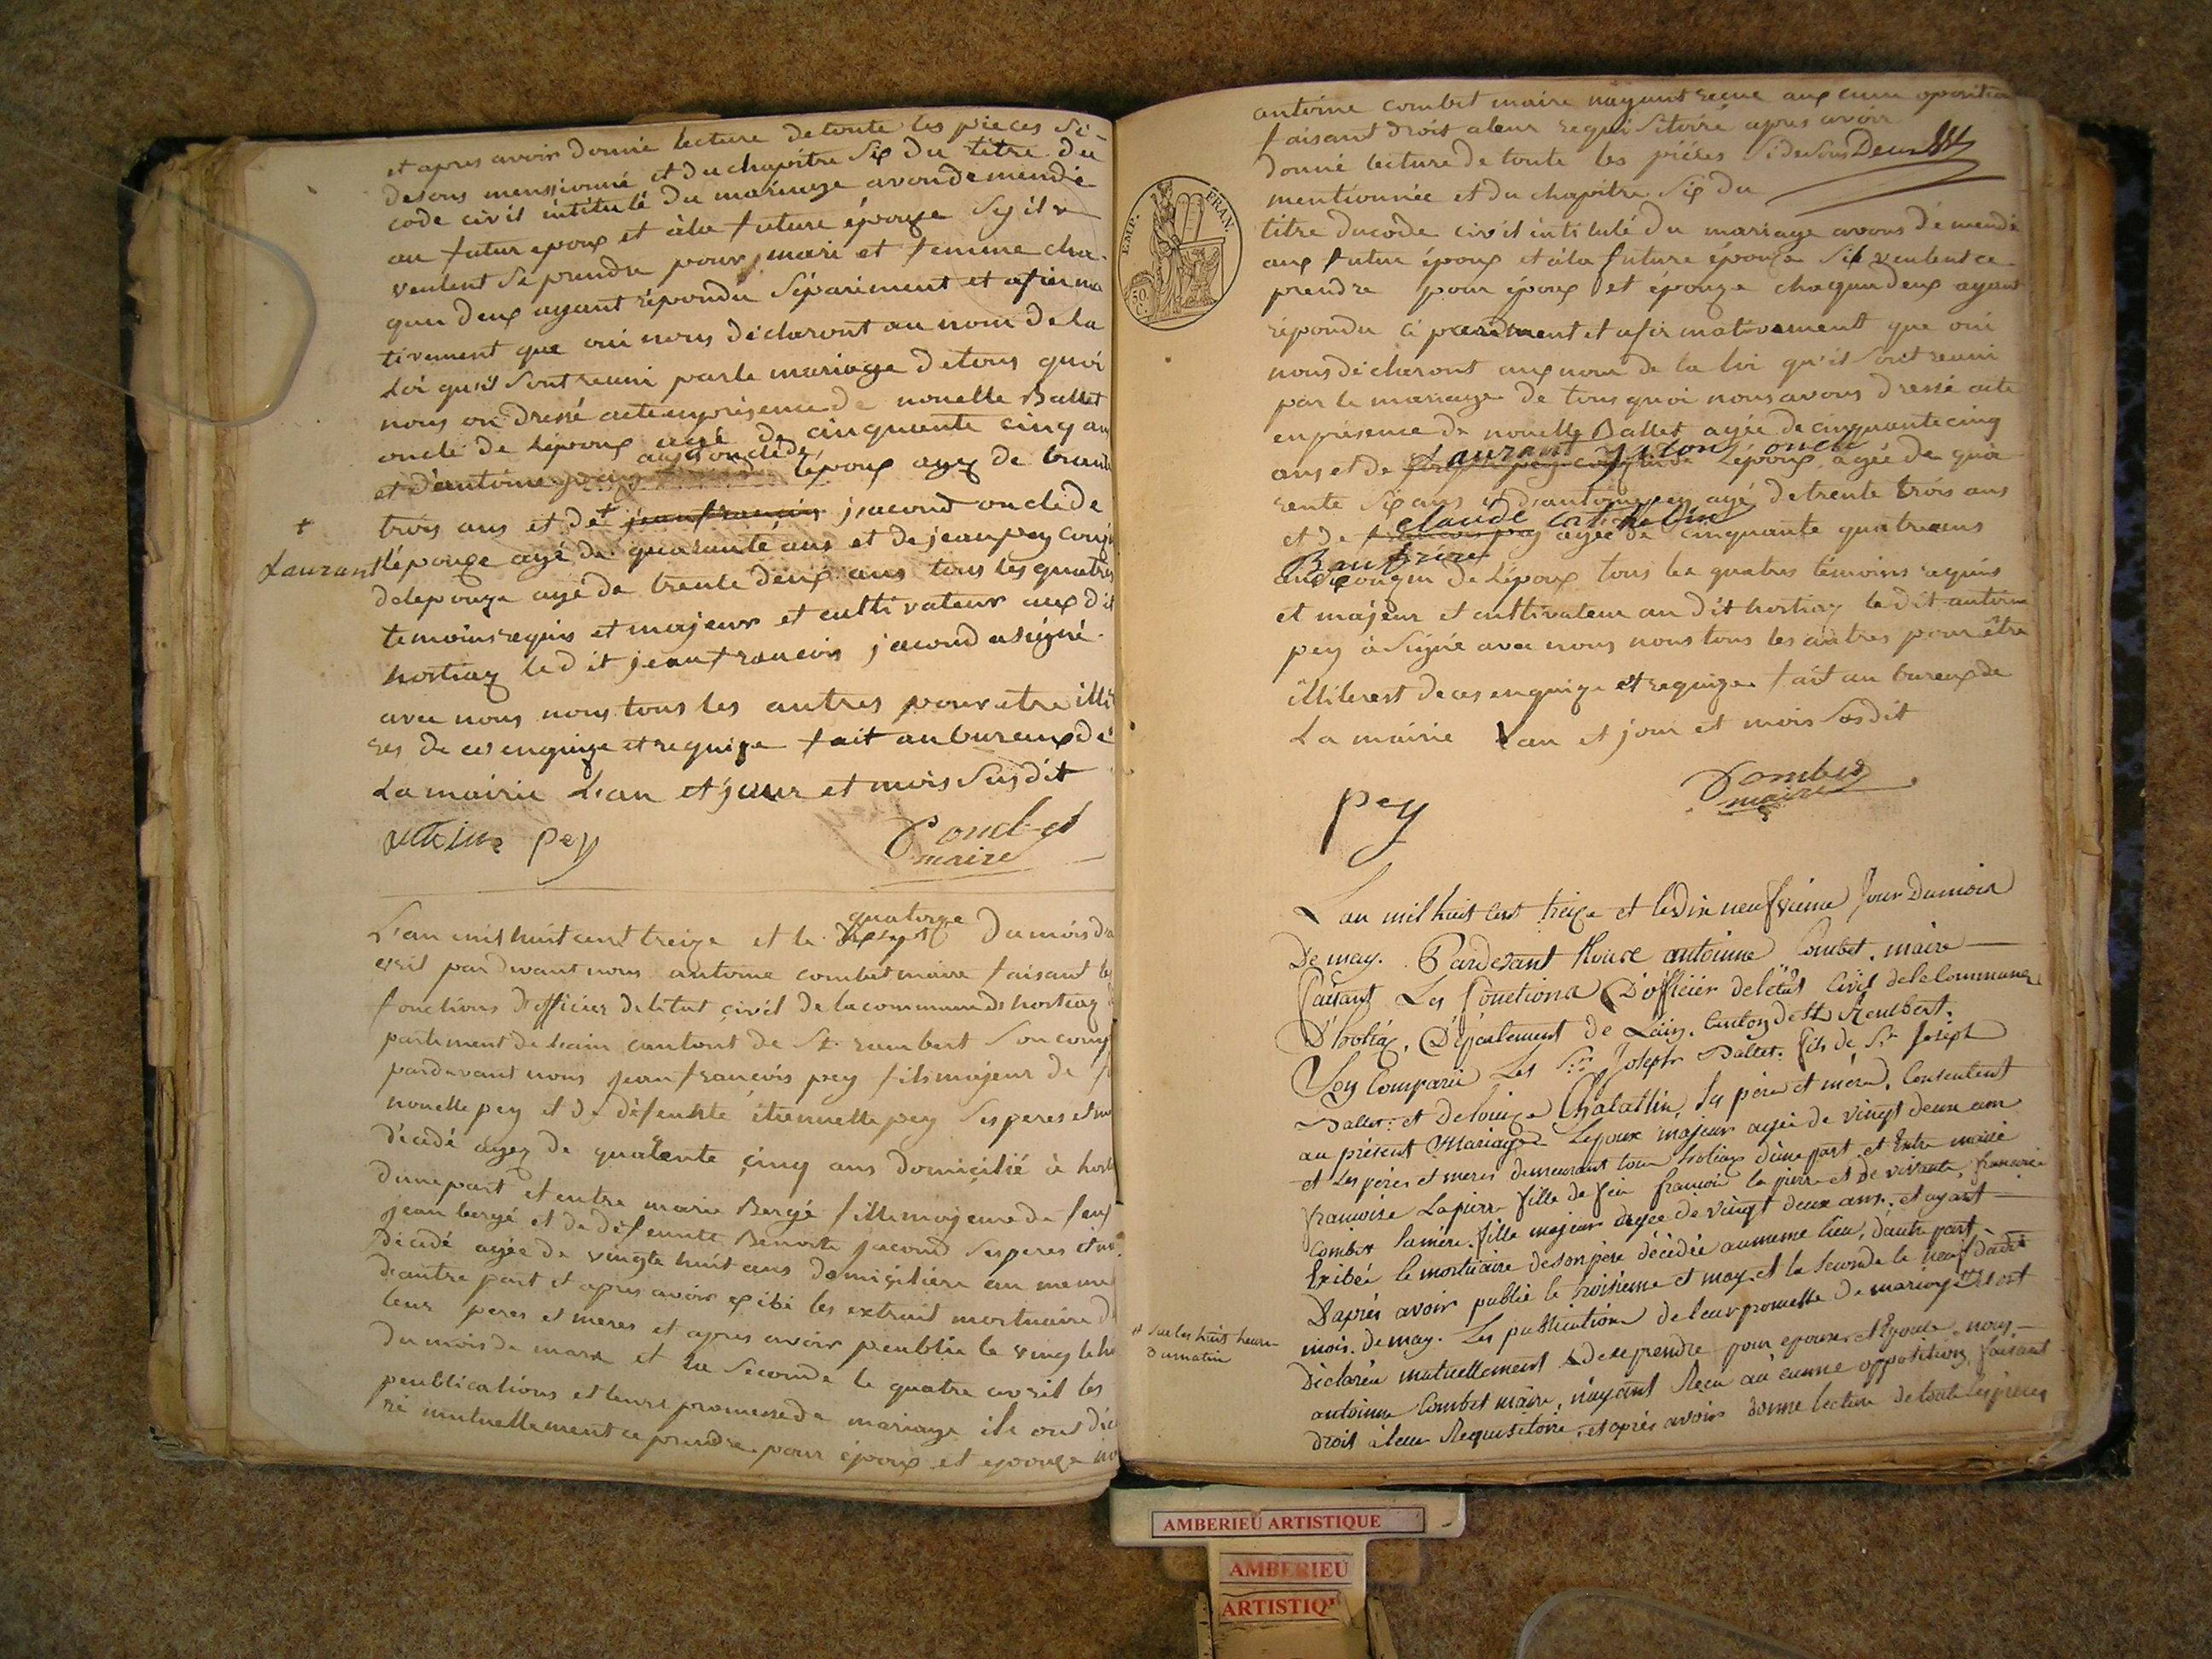 et apres avoir donné lecture detoute les pieces si-
desous menssionné et du chapitre Six du titre du
code civil intitulé du mariage avondemendé
au futur epoux et àla future épouze sy il v
veulent se prendre pour mari et femme cha-
qun deux ayant répondu séparément et afirma
tivement que oui nous déclaront au nom de la
Loi qu'il sont reuni par le mariage detous quoi
nous on dressé acte en présence de nouelle Ballet
oncle de Lépoux agé de cinquante cinq ans
et d'antoine pey aussi oncle de lépoux agez de trente
trois ans et de + jeanfrançois jacond oncle de
+
Laurant
lépouze agé de quarante ans et de jean pey cougin
delepouze agé de trente deux ans tous les quatres
temoins requis et majeur et cultivateur aux dit
hostiaz ledit jeanfrancois jacond a signé
avec nous nous tous les autres pour etre illi
res de ces enquize et requize fait au bureaux dé
La mairie L'an et jour et mois susdit
antoine pey Combet
maire
quatorze
L'an mil huit cent treize et le du mois da
vril pardevant nous antoine combet maire faisant les
fonctions d'officier deletat çivil de la commune de hostiaz
partement de l'ain cantont de St. rambert son comp
pardevant nous jean françois pey fils majeur de
nouelle pey et de défeunte étiennette pey ses peres et m
décedé agez de quarente çinq ans domiçilié à host
dune part et entre marie Bergé fille majeure de feux
jean bergé et de défeunte Benoite jacond ses peres et m
décedé agée de vingte huit ans domiçiliére au meme
d'autre part et apres avoir exibé les extrait mortuaire d
leur peres et meres et apres avoir peublié le vingt
du mois de mars et la seconde le quatre avril les
peublications et leurs promesse de mariage ils ont déc
ré mutuellement ce prendre pour époux et epouze no
antoine combet maire nayant reçue aux cune oposition
faisant droit a leur requisitoire apres avoir
donné lecture de toute les pièces si desous
mentionnée et du chapitre six du
EMP. FRAN.
50 C.
titre du code civil intitulé du mariage avons demendé
aux futur époux et àla future épouze sil veulent ce
prendre pour époux et épouze chaqun deux ayant
répondu cé parément et afirmativement que oui
nous déclaront aux nom de la loi qu'il sont reuni
par le mariage de tous quoi nous avons dressé acte
en présence de nouelle Ballet agée de cinquante cinq
ans et de Laurant jacond oncle Lépoux agée de qua
rente six ans et d'antoine pey agé de trente trois ans
et de claude agée de cinquante quatre ans
Beau frère
cougin de Lépoux tous les quatres témoins requis
et majeur et cultivateur au dit hostiaz le dit antoine
pey à signé avec nous nous tous les autres pour être
illiterest de ces enquize et requize fait au bureaux de
La mairie Lan et jour et mois susdit
pey Combet
maire
L an mil huit cent treize et le dix neuf vième jour du mois
De may. Pardevant Nous antoinne Combet, maire
faisant Les fonctions D'officier de létat Civil de la Commune
D'hostiaz, Département de Lain, Canton de St Rembert.
Son Comparü Les Sr. Joseph Ballet. fils de Sr Joseph
Ballet. et De louize Chatallin, ses père et mère, Consentent
au présent Mariage Lepoux majeur agée de vingt deux ans
et les pères et meres demeurant tous hostiaz d'une part et Entre marie
françoise Lapierre fille de feu francois la pierre et de vivante francoise
Combet sa mère, fille majeur agée de vingt deux ans, et ayant
Exibée le mortuaire de son père décédée au meme lieu, d'autre part
D'après avoir publié le troisieme et may et la seconde le neuf dudit
mois de may. Les publications de leur promesse de mariage et ont
# sur les huit heure
du matin
Déclarée mutuellement # de se prendre pour epoux et Epouse nous
antoinne Combet maire, n'ayant Reçu au cunne opposition, faisant
droit à leur Requisitoire, et après avoir donne lecture de toute les pieces
AMBERIEU ARTISTIQUE
AMBERIEU
ARTISTIQ